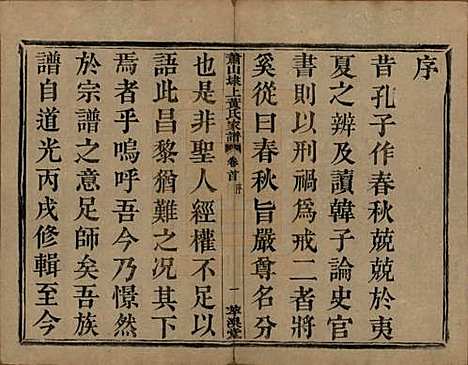 序
昔孔子作春秋兢兢於夷
夏之辨及讀韓子論史官
書則以刑禍爲戒二者將
奚從曰春秋旨嚴尊名分
蕭山埭上黃氏家譜 卷首 序 一
也是非聖人經權不足以
語此昌黎猶難之况其下
焉者乎嗚呼吾今乃憬然
於宗譜之意足師矣吾族
譜自道光丙戌修輯至今